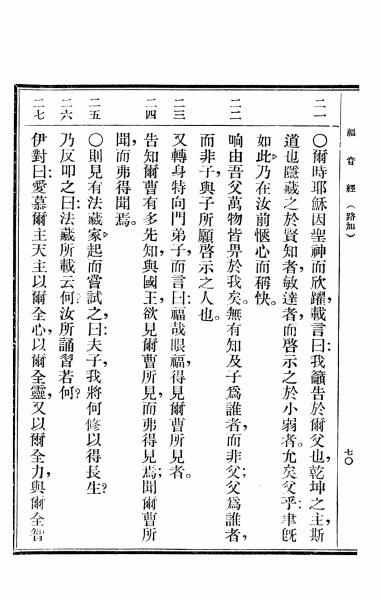 福音經（路加）
七〇
二一 〇爾時耶穌因聖神而欣躍，載言曰：我籲告於爾父也，乾坤之主，斯
道也隱藏之於賢知者，敏達者，而啓示之於小弱者。允矣父乎：聿既
如此，乃在汝前愜心而稱快。
二二 响由吾父萬物皆畀於我矣。無有知及子爲誰者，而非父；父爲誰者，
而非子，與子所願啓示之人也。
二三 又轉身特向門弟子，而言曰：福哉眼福，得見爾曹所見者。
二四 告知爾曹有多先知，與國王，欲見爾曹所見，而弗得見焉；聞爾曹所
聞，而弗得聞焉。
二五 〇則見有法藏家，起而嘗試之曰：夫子，我將何修以得長生？
二六 乃反叩之曰：法藏所載云何？汝所誦習若何？
二七 伊對曰：愛慕爾主天主以爾全心，以爾全靈，又以爾全力，與爾全智